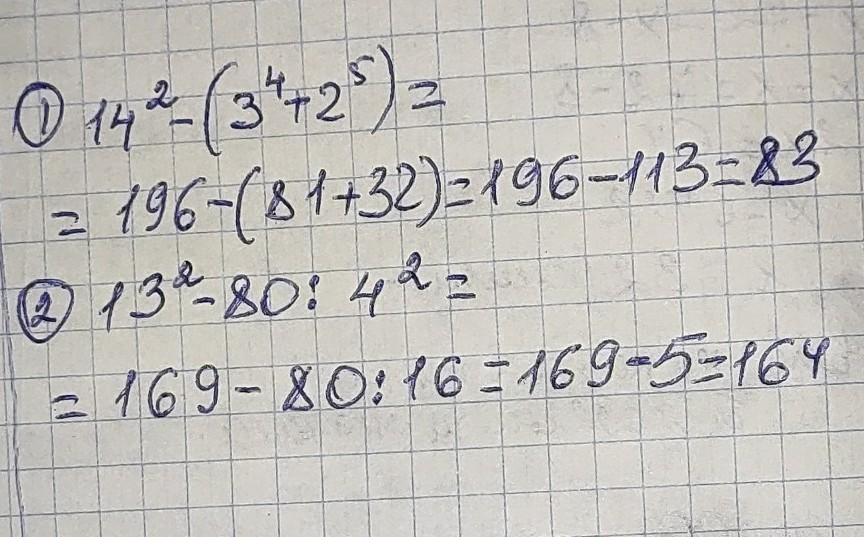 ① 14² - (3⁴ + 2⁵) =
= 196 - (81 + 32) = 196 - 113 = 83
② 13² - 80 : 4² =
= 169 - 80 : 16 = 169 - 5 = 164